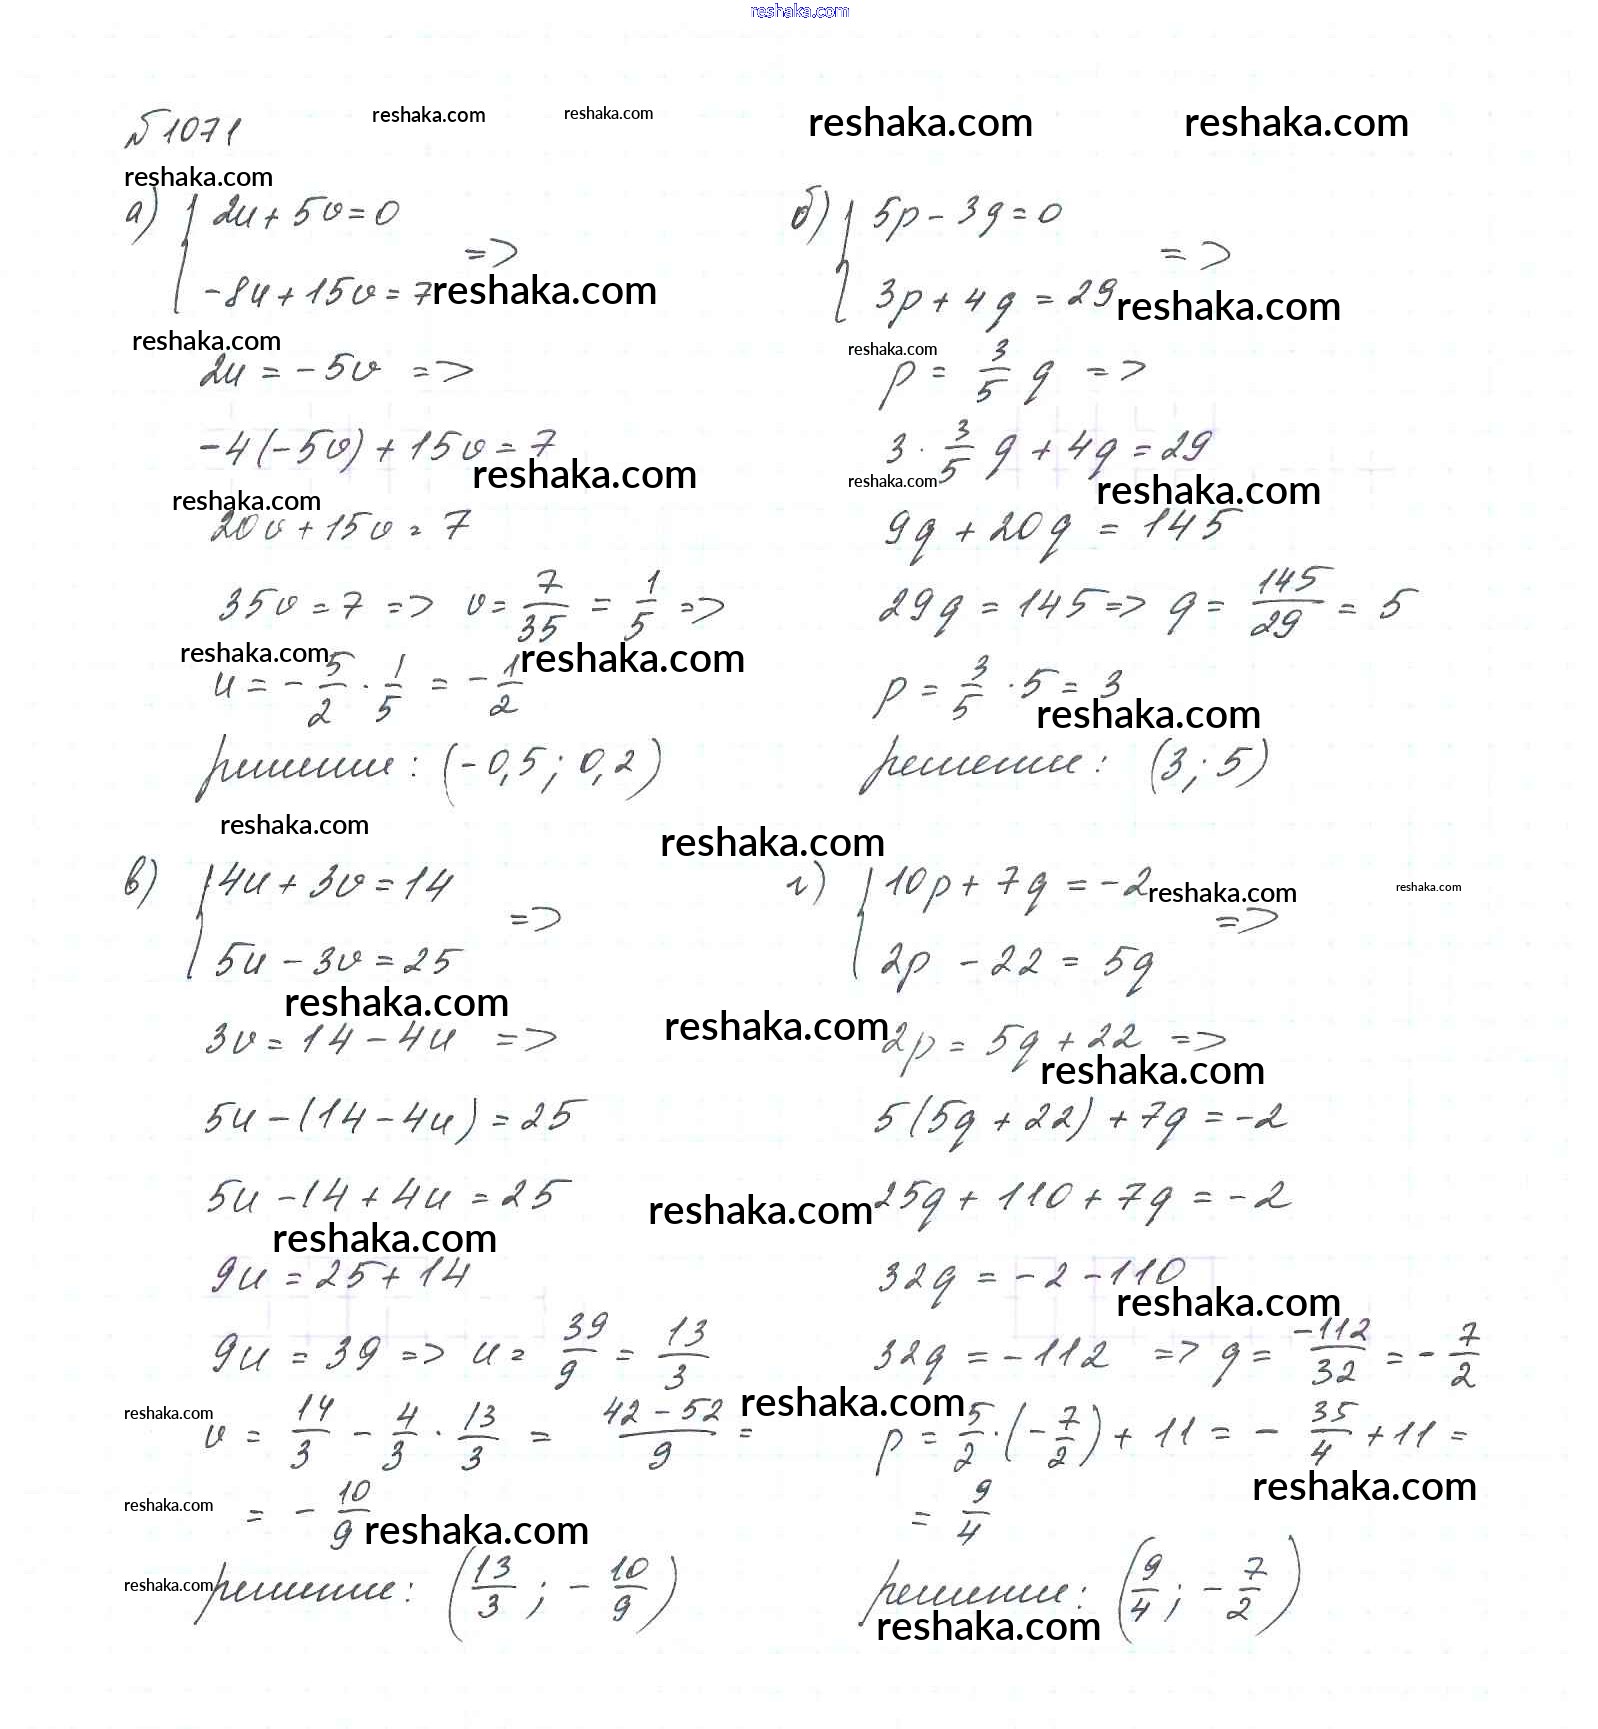 reshaka.com
№1071 reshaka.com reshaka.com reshaka.com reshaka.com
reshaka.com
а) { 2u + 5v = 0
-8u + 15v = 7 =>
reshaka.com
reshaka.com
2u = -5v =>
-4(-5v) + 15v = 7
reshaka.com
reshaka.com
20v + 15v = 7
35v = 7 => v = 7/35 = 1/5 =>
reshaka.com reshaka.com
u = -5/2 · 1/5 = -1/2
решение: (-0,5; 0,2)
б) { 5p - 3q = 0
3p + 4q = 29 =>
reshaka.com
reshaka.com
p = 3/5 q =>
3 · 3/5 q + 4q = 29
reshaka.com reshaka.com
9q + 20q = 145
29q = 145 => q = 145/29 = 5
p = 3/5 · 5 = 3
reshaka.com
решение: (3; 5)
reshaka.com reshaka.com
в) { 4u + 3v = 14
5u - 3v = 25 =>
reshaka.com
3v = 14 - 4u =>
5u - (14 - 4u) = 25
5u - 14 + 4u = 25
reshaka.com
9u = 25 + 14
9u = 39 => u = 39/9 = 13/3
reshaka.com
v = 14/3 - 4/3 · 13/3 = (42 - 52)/9 =
reshaka.com
= -10/9
reshaka.com
reshaka.com
решение: (13/3; -10/9)
г) { 10p + 7q = -2
reshaka.com reshaka.com
2p - 22 = 5q =>
reshaka.com
2p = 5q + 22 =>
reshaka.com
5(5q + 22) + 7q = -2
reshaka.com
25q + 110 + 7q = -2
32q = -2 - 110
reshaka.com
32q = -112 => q = -112/32 = -7/2
reshaka.com
p = 5/2 · (-7/2) + 11 = -35/4 + 11 =
reshaka.com
= 9/4
решение: (9/4; -7/2)
reshaka.com